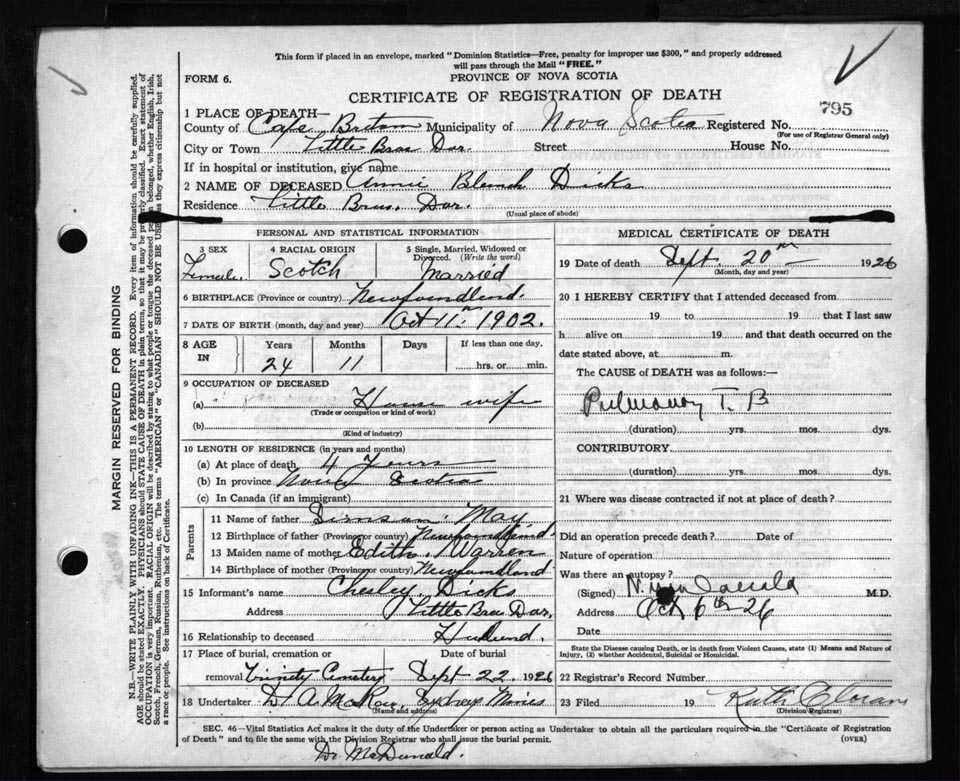 This form if placed in an envelope, marked "Dominion Statistics—Free, penalty for improper use $300," and properly addressed
will pass through the Mail "FREE."
FORM 6.
PROVINCE OF NOVA SCOTIA
CERTIFICATE OF REGISTRATION OF DEATH
795
1 PLACE OF DEATH—
County of Cape Breton Municipality of Nova Scotia Registered No.
(For use of Registrar General only)
City or Town Little Bras Dor. Street House No.
If in hospital or institution, give name
2 NAME OF DECEASED Annie Blanch Dicks
Residence Little Bras. Dor.
(Usual place of abode)
PERSONAL AND STATISTICAL INFORMATION
3 SEX
Female.
4 RACIAL ORIGIN
Scotch
5 Single, Married, Widowed or
Divorced. (Write the word)
Married
6 BIRTHPLACE (Province or country) Newfoundlend.
7 DATE OF BIRTH (month, day and year) Oct 11th 1902.
8 AGE IN
Years Months Days If less than one day,
24 11 hrs. or min.
9 OCCUPATION OF DECEASED
(a) House wife
(Trade or occupation or kind of work)
(b)
(Kind of industry)
10 LENGTH OF RESIDENCE (in years and months)
(a) At place of death 4 Years
(b) In province Nova Scotia
(c) In Canada (if an immigrant)
Parents
11 Name of father Simson. May
12 Birthplace of father (Province or country) Newfoundlend.
13 Maiden name of mother Edith. Warren
14 Birthplace of mother (Province or country) Newfoundland
15 Informant's name Chesley Dicks
Address Little Bras Dor,
16 Relationship to deceased Husbund.
17 Place of burial, cremation or Date of burial
removal Trinity Cemetery Sept 22 1926
18 Undertaker A McRae, Sydney Mines
(Name and address)
MEDICAL CERTIFICATE OF DEATH
19 Date of death Sept. 20th 1926
(Month, day and year)
20 I HEREBY CERTIFY that I attended deceased from
19 to 19 that I last saw
h alive on 19 and that death occurred on the
date stated above, at m.
The CAUSE of DEATH was as follows:—
Pulmonary T. B
(duration) yrs. mos. dys.
CONTRIBUTORY.
(duration) yrs. mos. dys.
21 Where was disease contracted if not at place of death?
Did an operation precede death? Date of
Nature of operation
Was there an autopsy?
(Signed) M.D.
Address Oct 6th 26
Date
State the Disease causing Death, or in death from Violent Causes, state (1) Means and Nature of
Injury, (2) whether Accidental, Suicidal or Homicidal.
22 Registrar's Record Number
23 Filed 19 Ruth
(Division Registrar)
SEC. 46—Vital Statistics Act makes it the duty of the Undertaker or person acting as Undertaker to obtain all the particulars required in the "Certificate of Registration
of Death" and to file the same with the Division Registrar who shall issue the burial permit. (OVER)
Dr McDunald.
MARGIN RESERVED FOR BINDING
N.B.—WRITE PLAINLY WITH UNFADING INK—THIS IS A PERMANENT RECORD. Every item of information should be carefully supplied.
AGE should be stated EXACTLY. PHYSICIANS should STATE CAUSE OF DEATH in plain terms, so that it may be properly classified. Exact statement of
OCCUPATION is very important. RACIAL ORIGIN will be described by stating to what people or tongue the deceased person belonged, whether English, Irish,
Scotch, French, German, Russian, Ruthenian, etc. The terms "AMERICAN" or "CANADIAN" SHOULD NOT BE USED as they express citizenship but not
a race or people. See instructions on back of Certificate.